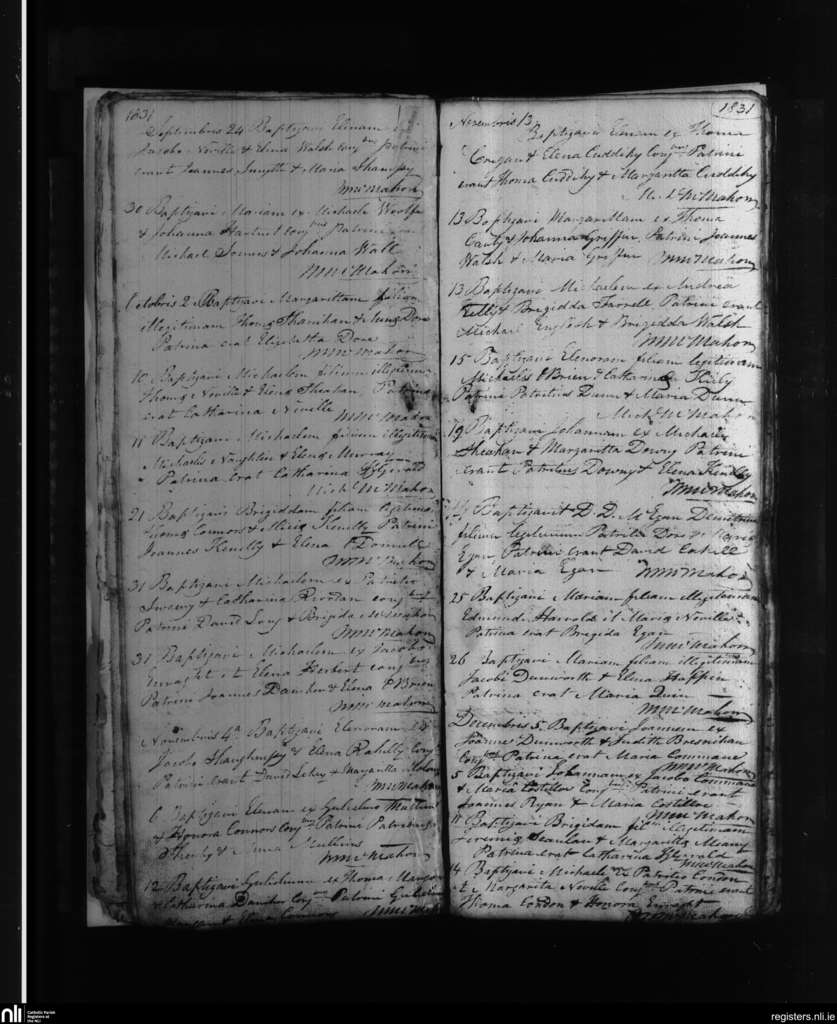 1831
Septembris 24 Baptizavi Elenam ex
Jacobo Neville & Elena Walsh conj Patrini
erant Joannes Smyth & Maria Shaughnessy
MMcMahon
30 Baptizavi Mariam ex Michaele Woolfe
& Johanna Hartnet conj Patrini
Michael Somers & Johanna Wall
MMcMahon
Octobris 2 Baptizavi Margarittam filiam
illegitimam Thomæ Shanihan & Dore
Patrina erat Elizabetta Dore
MMcMahon
10 Baptizavi Michaelem filium illegitimum
Thomæ Neville & Elenæ Sheahan, Patrina
erat Catharina Neville
MMcMahon
11 Baptizavi Michaelem filium illegitimum
Michaelis Naughten & Elenæ Murray
Patrina erat Catharina FzGerald
Michl McMahon
21 Baptizavi Brigiddam filiam legitimam
Thomæ Connors & Kenelly Patrini
Joannes Kenelly & Elena O'Donnell
MMcMahon
31 Baptizavi Michaelem ex Patritio
Sweeny & Catharina Riordan conj
Patrini David Long & Brigida
MMcMahon
31 Baptizavi Michaelem ex Jacobo
Enraght et Elena Herbert conj
Patrini Joannes & Elena O'Brien
MMcMahon
Novembris 4a Baptizavi Elenoram ex
Jacobo Shaughnessy & Elena Rahilly Conj
Patrini erant David & Margaritta
MMcMahon
6 Baptizavi Elenam ex Gulielmo Mullins
& Honora Connors Conj Patrini Patricius
Sheehy & Anna Mullins
MMcMahon
12 Baptizavi Gulielmum ex Thoma Mangan
& Catharina Conj Patrini Gulielmus
Mangan & Elena Connors MMcMahon
1831
Novembris 13
Baptizavi Elenam ex Thoma
Corgan & Elena Cuddihy Conj Patrini
erant Thoma Cuddihy & Margaritta Cuddihy
McMahon
13 Baptizavi Margarittam ex Thoma
& Johanna Griffin, Patrini Joannes
Walsh & Maria Griffin MMcMahon
13 Baptizavi Michaelem ex Andrea
Kelly & Brigidda Farrell, Patrini erant
Michael English & Brigidda Walsh
MMcMahon
15 Baptizavi Elenoram filiam legitimam
Michaelis O'Brien & Catharinæ Kiely
Patrini Patritius Dunn & Maria Dunn
Michl McMahon
19 Baptizavi Johannam ex Michaele
Sheahan & Margaritta Downy Patrini
erant Patritius Downy & Elena
MMcMahon
Baptizavit D. D. McEgan Demetrium
filium legitimum Patritii Dore & Mariæ
Egan, Patrini erant David Cahill
& Maria Egan MMcMahon
25 Baptizavi Mariam filiam illegitimam
Edmundi Harrold et Mariæ Neville
Patrina erat Bregida Egan
MMcMahon
26 Baptizavi Mariam filiam illegitimam
Jacobi Dunworth & Elena
Patrina erat Maria Quin
MMcMahon
Decembris 5 Baptizavi Joannem ex
Joanne Dunworth & Judith Bresnihan
Conj Patrina erat Maria Commane
MMcMahon
5 Baptizavi Johannam ex Jacobo Commane
& Maria Costilloe Conj Patrini erant
Joannes Ryan & Maria Costilloe
MMcMahon
11 Baptizavi Brigidam fil illegitimam
Jeremiæ Scanlan & Margarittæ Meany
Patrina erat Catharina FzGerald
MMcMahon
14 Baptizavi Michaele ex Patritio Condon
& Margarita Neville Conj Patrini erant
Thoma Condon & Honora Enraght
MMcMahon
nli
Catholic Parish
Registers at
the NLI
registers.nli.ie